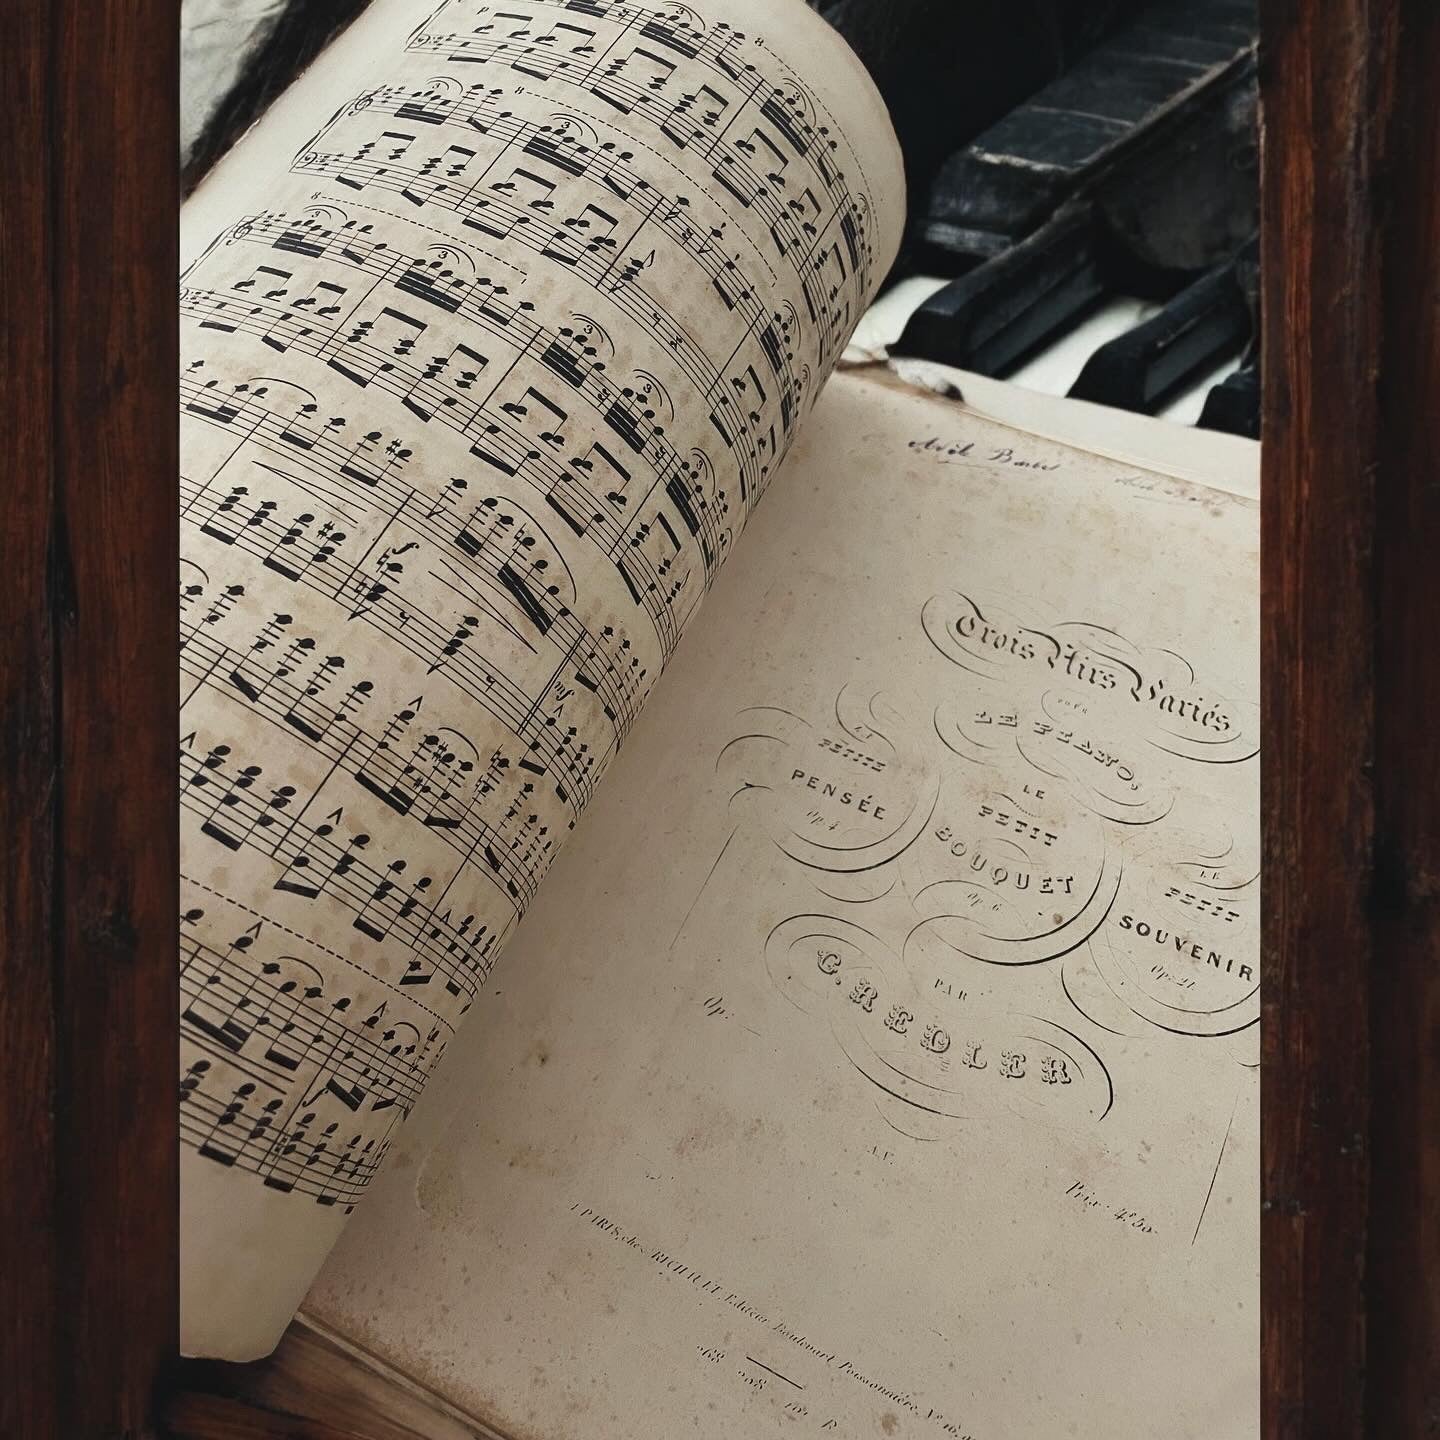 Trois Airs Variés
POUR
LE PIANO,
LA
PETITE
PENSÉE
Op. 4
LE
PETIT
BOUQUET
Op. 6
LE
PETIT
SOUVENIR
Op. 21.
PAR
G. REDLER
Op:
A.V.
Prix: 4f 50c
A PARIS, chez RICHAULT, Editeur Boulevart Poissonnière, No 16, au